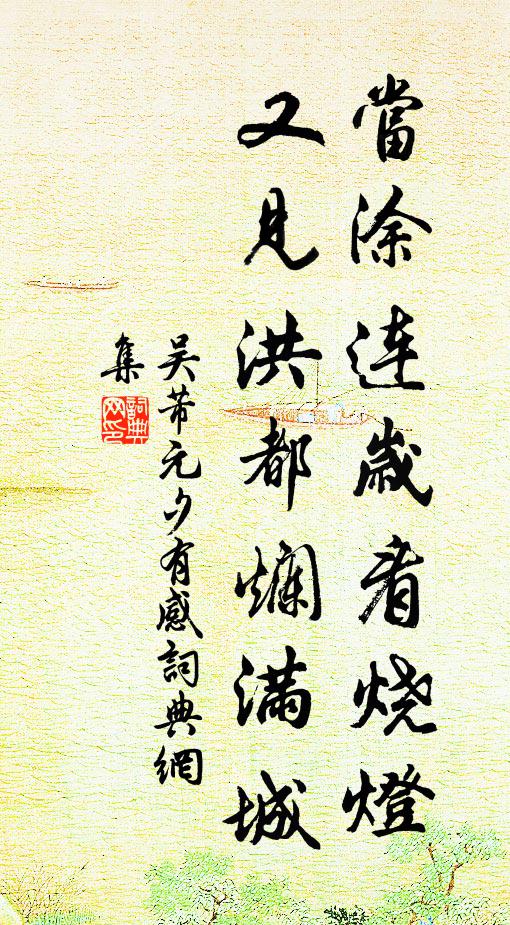 當涂连歲看烧燈
又見洪都爛满城
吴芾元夕有感詞典網
集
詞典
网印